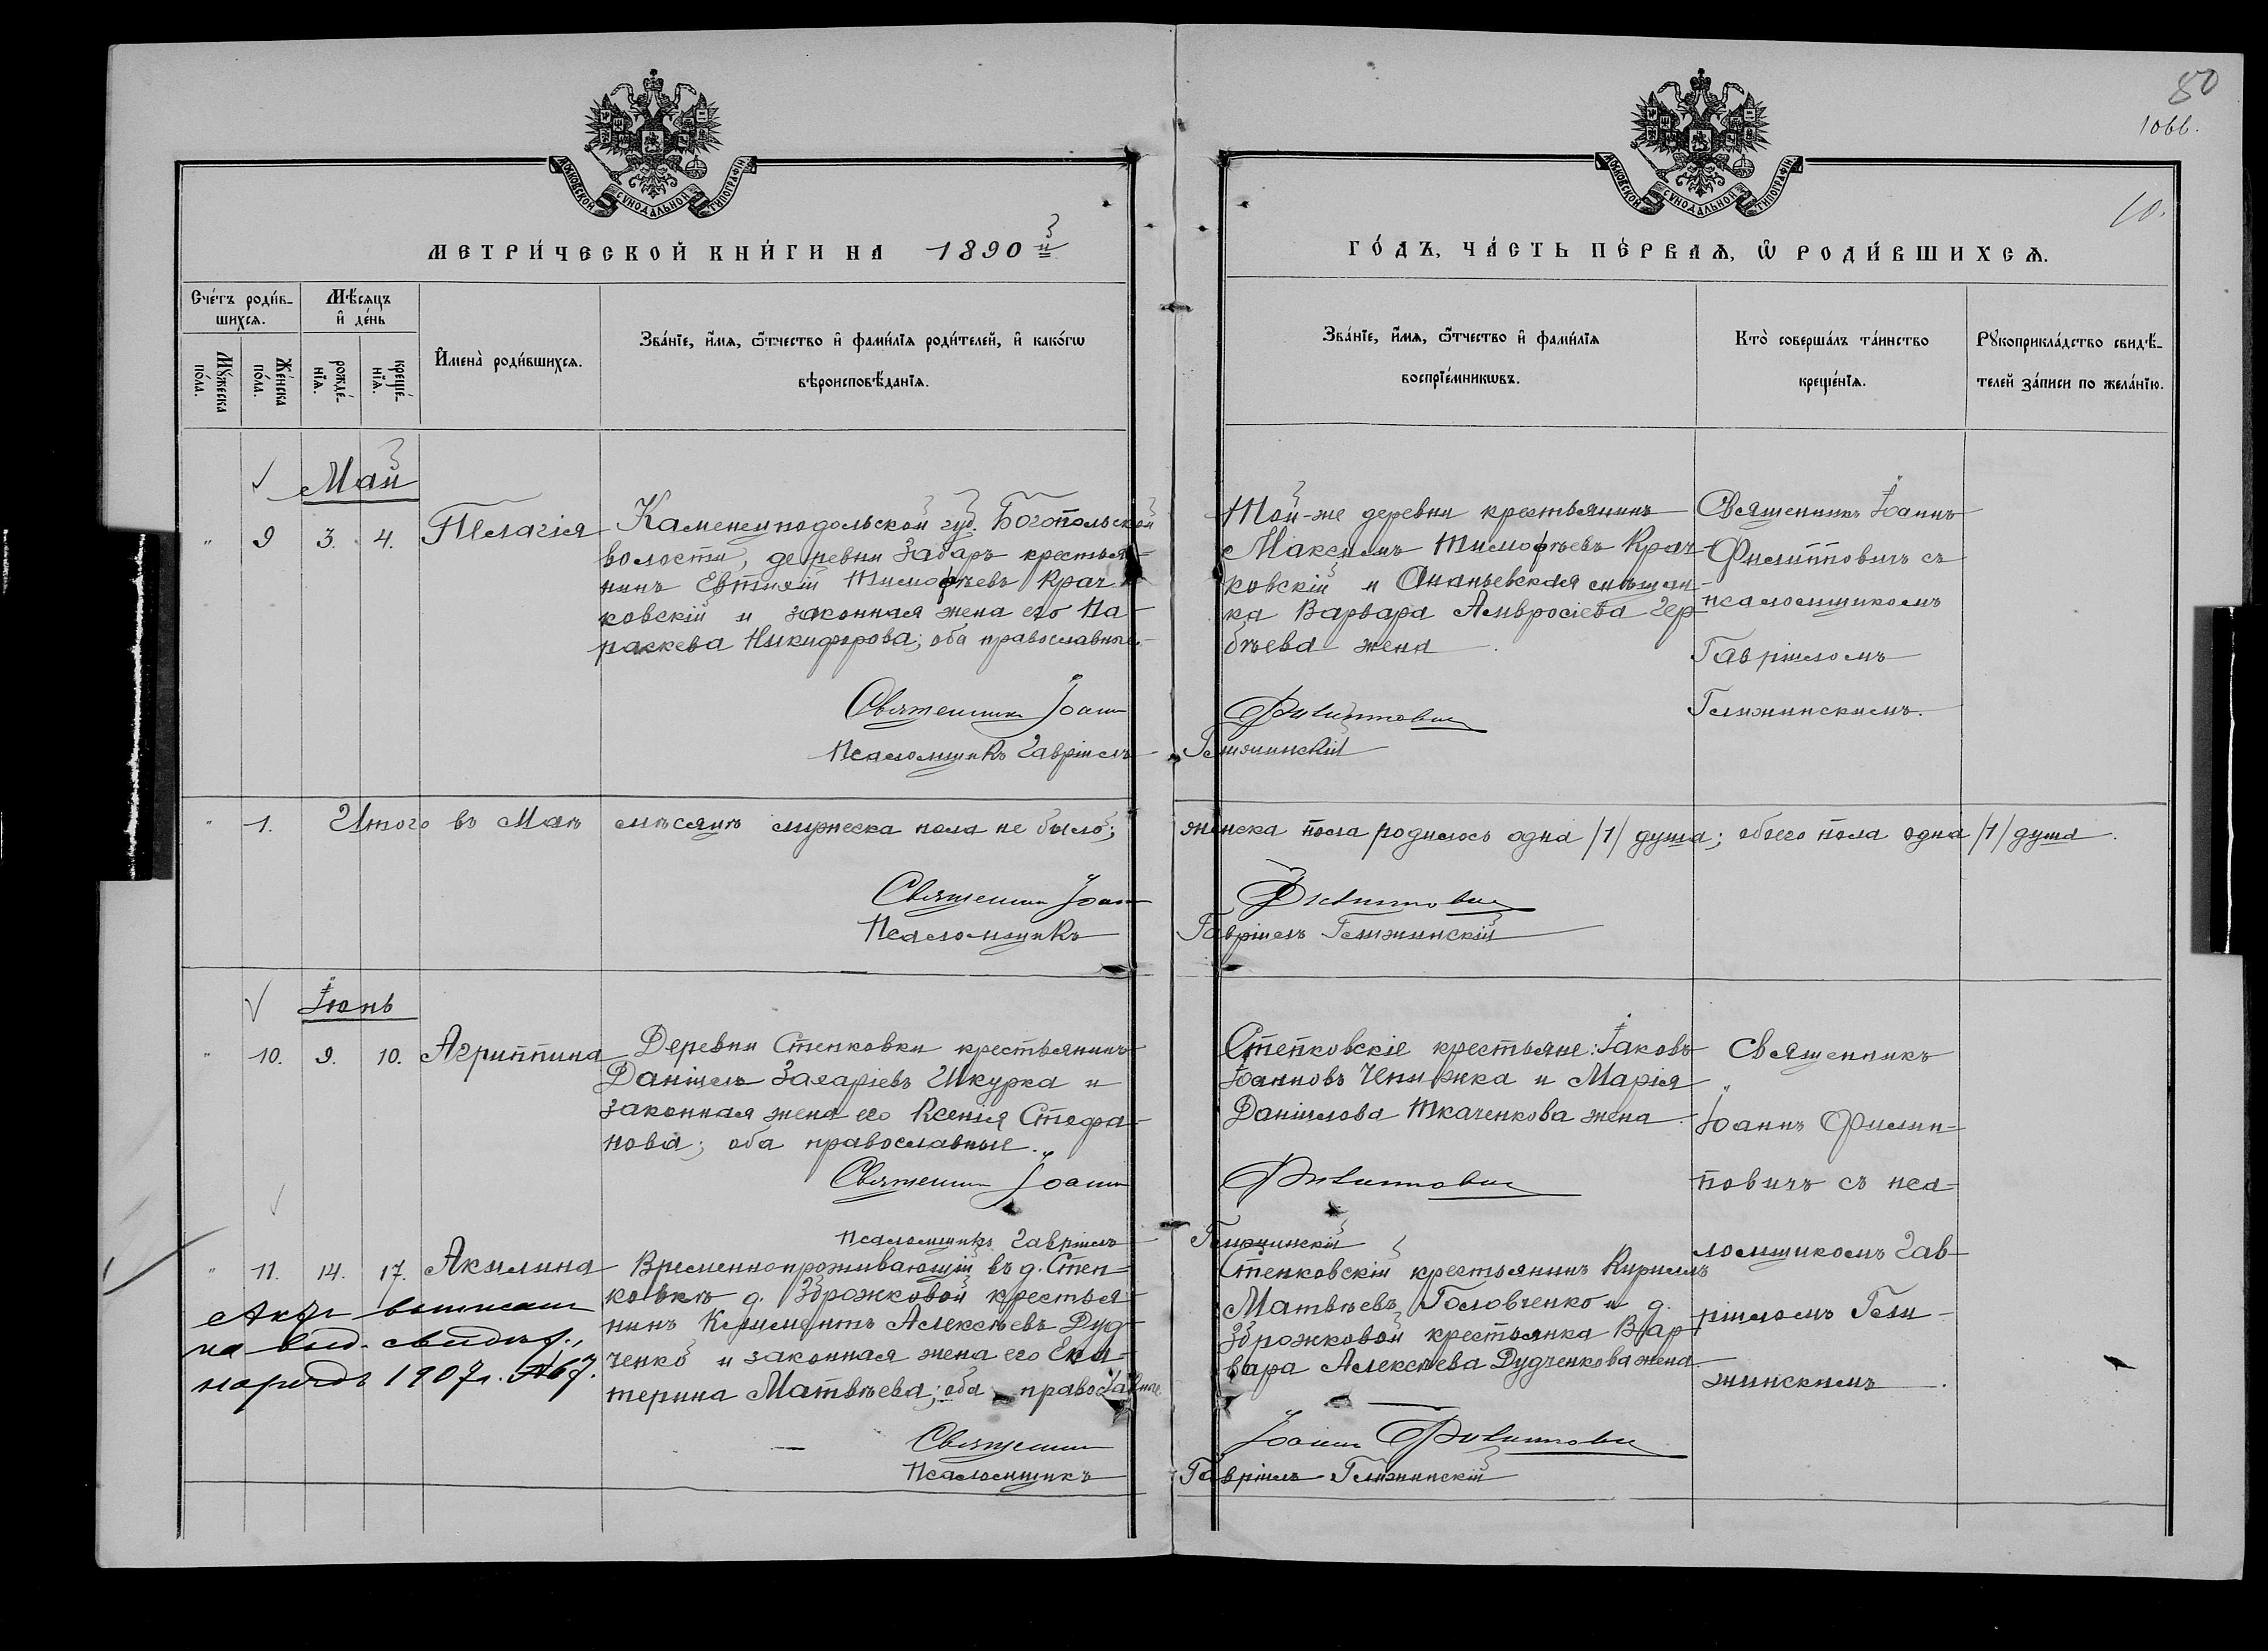 80
10об.
10.
МОСКОВСКОЙ СѴНОДАЛЬНОЙ ТИПОГРАФІИ
МОСКОВСКОЙ СѴНОДАЛЬНОЙ ТИПОГРАФІИ
МЕТРИ́ЧЕСКОЙ КНИ́ГИ НА 1890й
ГО́ДЪ, ЧА́СТЬ ПЕ́РВАѦ, Ѽ РОДИ́ВШИХСѦ.
Сче́тъ роди́в-
шихсѧ.
Мѣ́сѧцъ
и҆ де́нь
Мꙋ́жеска
по́ла.
Же́нска
по́ла.
рожде́-
нїѧ.
креще́-
нїѧ.
И҆мена̀ роди́вшихсѧ.
Зва́нїе, и҆́мѧ, ѻ҆́тчество и҆ фами́лїѧ роди́телей, и҆ како́гѡ
вѣроисповѣ́данїѧ.
Зва́нїе, и҆́мѧ, ѻ҆́тчество и҆ фами́лїѧ
воспрїе́мникѡвъ.
Кто̀ соверша́лъ та́инство
креще́нїѧ.
Рꙋкоприкла́дство свидѣ́-
телей за́писи по жела́нїю.
Май
" 9 3. 4. Пелагія
Каменецподольской губ. Богопольской
волости, деревни Забаръ крестья-
нинъ Евтихій Тимофѣевъ Крач-
ковскій и законная жена его Па-
раскева Никифорова; оба православные.
Священникъ Іоаннъ
Псаломщикъ Гавріилъ
Той-же деревни крестьянинъ
Максимъ Тимофѣевъ Крач-
ковскій и Ананьевская мѣщан-
ка Варвара Амвросіева Гер-
бѣева жена.
Филипповичъ
Гелжинскій
Священникъ Іоаннъ
Филипповичъ съ
псаломщикомъ
Гавріиломъ
Гелжинскимъ.
" 1. Итого въ Маѣ мѣсяцѣ мужеска пола не было; женска пола родилось одна /1/ душа; обоего пола одна /1/ душа.
Священникъ Іоаннъ Филипповичъ
Псаломщикъ Гавріилъ Гелжинскій
Іюнь
" 10. 9. 10. Агриппина
Деревни Степковки крестьянинъ
Даніилъ Захаріевъ Шкурка и
законная жена его Ксенія Стефа-
нова; оба православные.
Священникъ Іоаннъ
Псаломщикъ Гавріилъ
Степковскіе крестьяне: Іаковъ
Іоанновъ Чепижка и Марія
Даніилова Ткаченкова жена.
Филипповичъ
Гелжинскій
Священникъ
Іоаннъ Филип-
повичъ съ пса-
ломщикомъ Гав-
ріиломъ Гел-
жинскимъ.
" 11. 14. 17. Акилина
Актъ выписанъ
на выд. свидѣт.,
нарядъ 1907 г. №67.
Временнопроживающій въ д. Степ-
ковкѣ д. Зброжковой крестья-
нинъ Климентъ Алексѣевъ Дуд-
ченко и законная жена его Ека-
терина Матвѣева; оба православные.
Священникъ
Псаломщикъ
Степковскій крестьянинъ Кириллъ
Матвѣевъ Головченко и д.
Зброжковой крестьянка Вар-
вара Алексѣева Дудченкова жена.
Іоаннъ Филипповичъ
Гавріилъ Гелжинскій